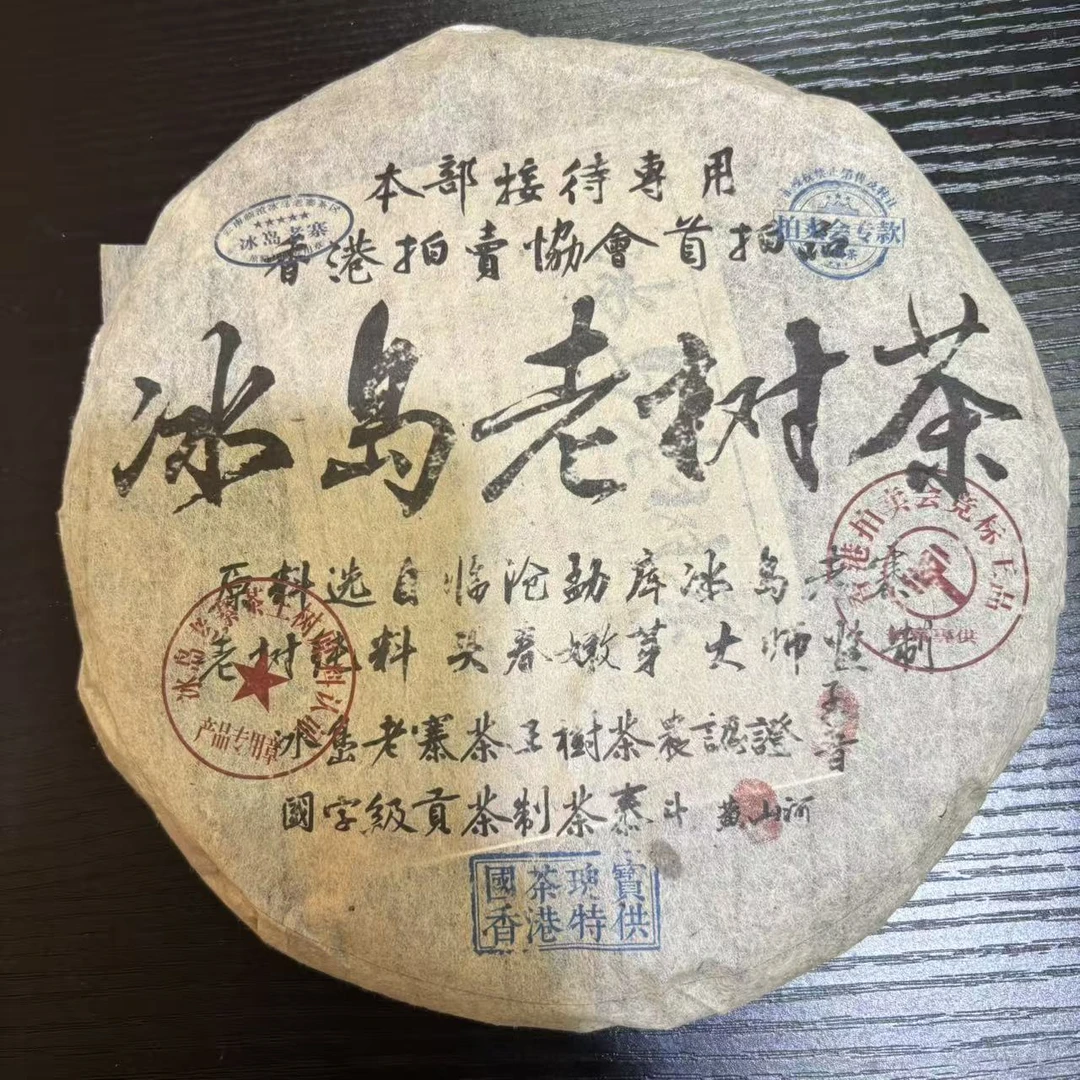 本部接待專用
冰岛老寨
拍卖会专款
香港拍賣協會首拍品
冰岛老树茶
原料选自临沧勐库冰岛老寨
老树纯料 头春嫩芽 大师监制
冰岛老寨茶王树茶農認證
國字級貢茶制茶泰斗 黄山河
产品专用章
國茶瑰寳
香港特供